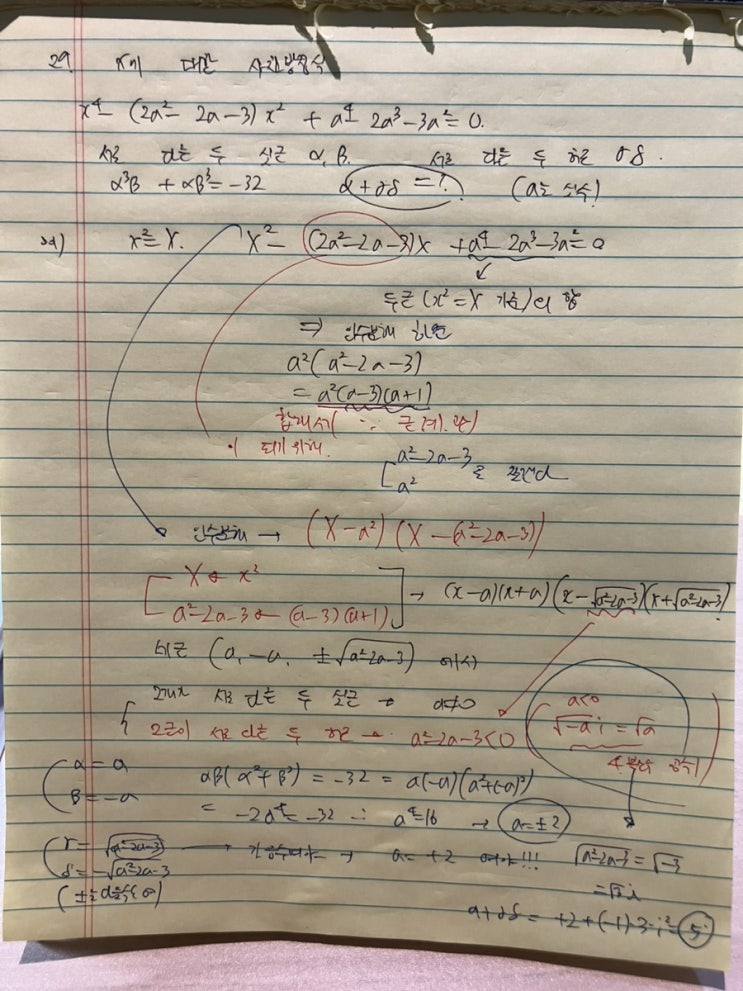 29. x에 대한 사차방정식
x⁴ - (2a² - 2a - 3)x² + a⁴ - 2a³ - 3a² = 0.
서로 다른 두 실근 α, β. 서로 다른 두 허근 γ δ.
α³β + αβ³ = -32 a + γδ = ? (a는 실수)
x² = X. X² - (2a² - 2a - 3)X + a⁴ - 2a³ - 3a² = 0
두근 (x² = X 기준)의 합
⇒ 인수분해 하면
a²(a² - 2a - 3)
= a²(a-3)(a+1)
∵ 근계.
이 되기 위해.
[a² - 2a - 3
a² 로
인수분해 → (X - a²)(X - (a² - 2a - 3))
X ← x²
a² - 2a - 3 ← (a-3)(a+1) → (x-a)(x+a)(x - √(a²-2a-3))(x + √(a²-2a-3))
네근 (a, -a, ±√(a²-2a-3)) 에서
2근이 서로 다른 두 실근 → a≠0
2근이 서로 다른 두 허근 → a² - 2a - 3 < 0
a<0
√-a i = √a
α = a
β = -a
αβ(α² + β²) = -32 = a(-a)(a² + (-a)²)
= -2a⁴ = -32 ∴ a⁴ = 16 → a = ±2
γ = √(a²-2a-3) → 가 허수여야 → a = +2 여야!!! √(a²-2a-3) = √-3
δ = -√(a²-2a-3)
= √3 i
a + γδ = +2 + (-1)·3·i² = 5